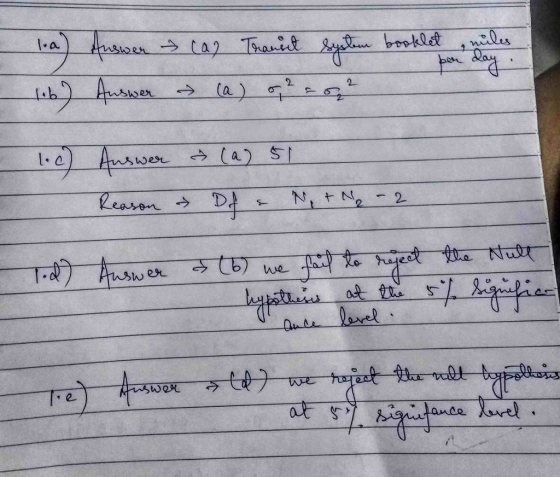 1.a) Answer → (a) Transit system booklet, miles
per day.
1.b) Answer → (a) σ₁² = σ₂²
1.c) Answer → (a) 51
Reason → Df = N₁ + N₂ - 2
1.d) Answer → (b) we fail to reject the Null
hypothesis at the 5% signific-
ance level.
1.e) Answer → (d) we reject the null hypothesis
at 5% signifance level.